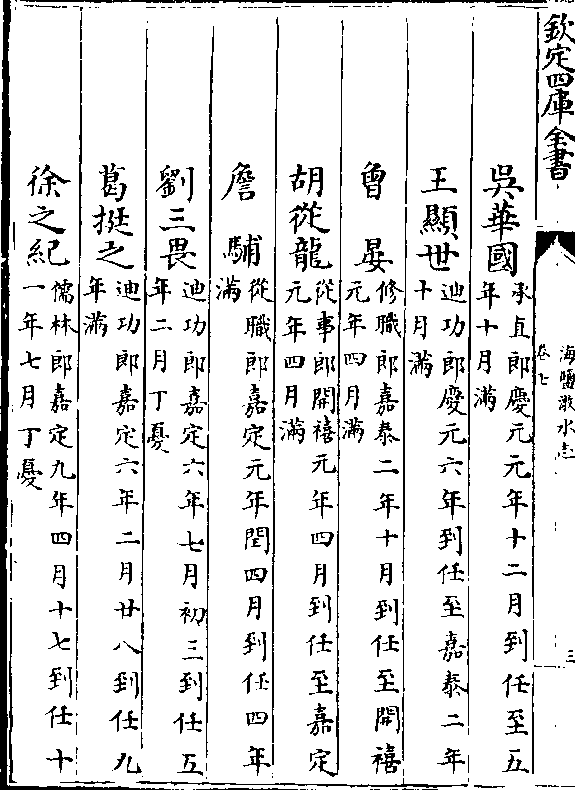 欽定四庫全書
海鹽澉水志
卷七
三
吳華國 承直郎慶元元年十二月到任至五
年十月滿
王顯世 迪功郎慶元六年到任至嘉泰二年
十月滿
曾晏 修職郎嘉泰二年十月到任至開禧
元年四月滿
胡從龍 從事郎開禧元年四月到任至嘉定
元年四月滿
詹騚 從職郎嘉定元年閏四月到任四年
滿
劉三畏 迪功郎嘉定六年七月初三到任五
年二月丁憂
葛挺之 迪功郎嘉定六年二月廿八到任九
年滿
徐之紀 儒林郎嘉定九年四月十七到任十
一年七月丁憂